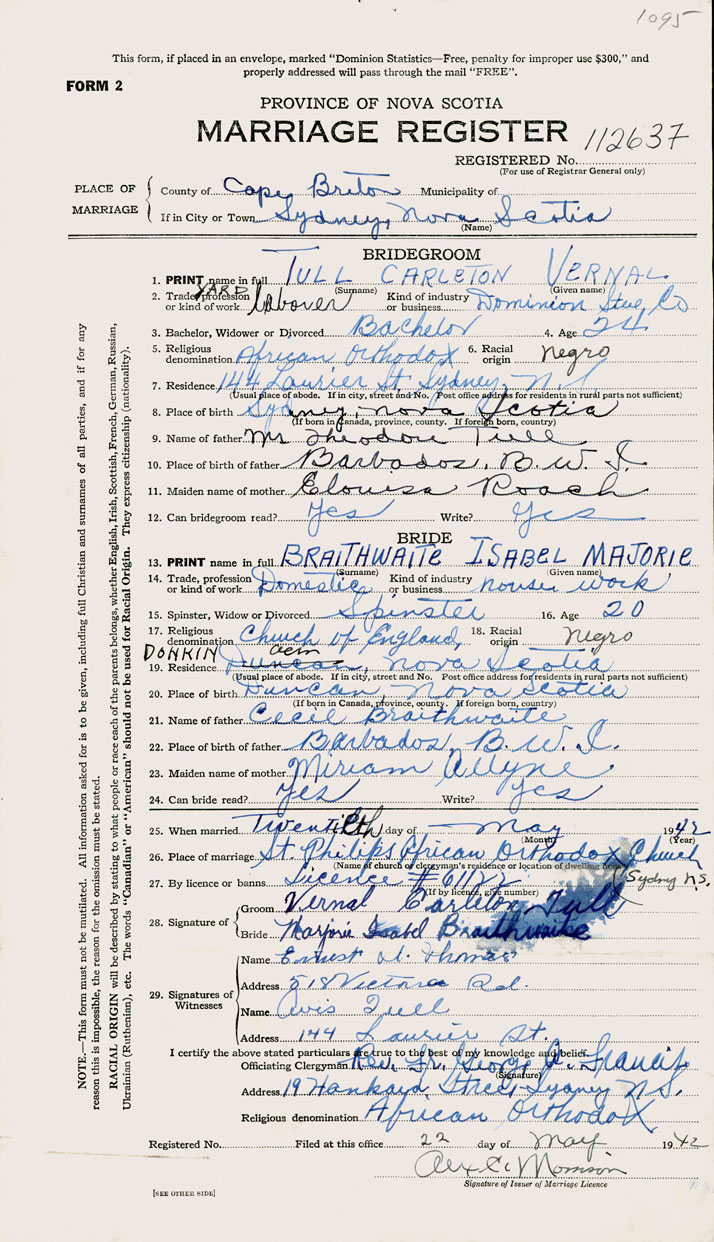 1095
This form, if placed in an envelope, marked "Dominion Statistics—Free, penalty for improper use $300," and
properly addressed will pass through the mail "FREE".
FORM 2
PROVINCE OF NOVA SCOTIA
MARRIAGE REGISTER 112637
REGISTERED No.
(For use of Registrar General only)
PLACE OF MARRIAGE
County of Cape Breton Municipality of
If in City or Town Sydney, Nova Scotia
(Name)
BRIDEGROOM
1. PRINT name in full TULL CARLETON VERNAL
(Surname) (Given name)
YARD
2. Trade, profession or kind of work labover Kind of industry or business Dominion Stue, Co
3. Bachelor, Widower or Divorced Bachelor 4. Age 24
5. Religious denomination African Orthodox 6. Racial origin Negro
7. Residence 144 Laurier St Sydney, N.S
(Usual place of abode. If in city, street and No. Post office address for residents in rural parts not sufficient)
8. Place of birth Sydney, nova Scotia
(If born in Canada, province, county. If foreign born, country)
9. Name of father Mr Theodore Tull
10. Place of birth of father Barbados, B.W.I.
11. Maiden name of mother Elouisa Roach
12. Can bridegroom read? Yes Write? Yes
BRIDE
13. PRINT name in full BRAITHWAITE ISABEL MAJORIE
(Surname) (Given name)
14. Trade, profession or kind of work Domestic Kind of industry or business house work
15. Spinster, Widow or Divorced Spinster 16. Age 20
17. Religious denomination Church of England, 18. Racial origin Negro
DONKIN
19. Residence Duncan, Nova Scotia
(Usual place of abode. If in city, street and No. Post office address for residents in rural parts not sufficient)
20. Place of birth Duncan, Nova Scotia
(If born in Canada, province, county. If foreign born, country)
21. Name of father Cecil Braithwaite
22. Place of birth of father Barbados, B.W.I.
23. Maiden name of mother Miriam Allyne
24. Can bride read? Yes Write? Yes
25. When married Twentieth day of May 1942
(Month) (Year)
26. Place of marriage St. Philips African Orthodox Church
(Name of church or clergyman's residence or location of dwelling house)
Sydney N.S.
27. By licence or banns Licence # 61122
(If by licence, give number)
28. Signature of
Groom Vernal Carleton Tull
Bride Marjorie Isabel Braithwaite
29. Signatures of Witnesses
Name Ernest St. Thomas
Address 518 Victoria Rd.
Name Avis Tull
Address 144 Laurier St.
I certify the above stated particulars are true to the best of my knowledge and belief.
Officiating Clergyman Rev. Fr. George A. Francis
(Signature)
Address 19 Hankard Street Sydney N.S.
Religious denomination African Orthodox
Registered No. Filed at this office 22 day of May 1942
Alex C. Morrison
Signature of Issuer of Marriage Licence
[SEE OTHER SIDE]
NOTE.—This form must not be mutilated. All information asked for is to be given, including full Christian and surnames of all parties, and if for any
reason this is impossible, the reason for the omission must be stated.
RACIAL ORIGIN will be described by stating to what people or race each of the parents belongs, whether English, Irish, Scottish, French, German, Russian,
Ukrainian (Ruthenian), etc. The words "Canadian" or "American" should not be used for Racial Origin. They express citizenship (nationality).